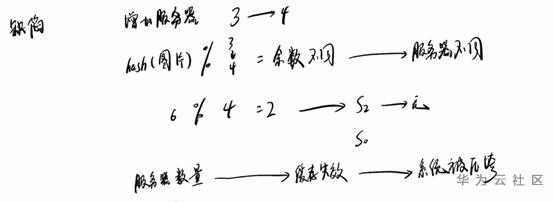 缺陷
增加服务器 3 → 4
hash(图片) % 3 4 = 余数不同 → 服务器不同
6 % 4 = 2 → S2 → 无
S0
服务器数量 → 缓存失效 → 系统被压垮
华为云社区